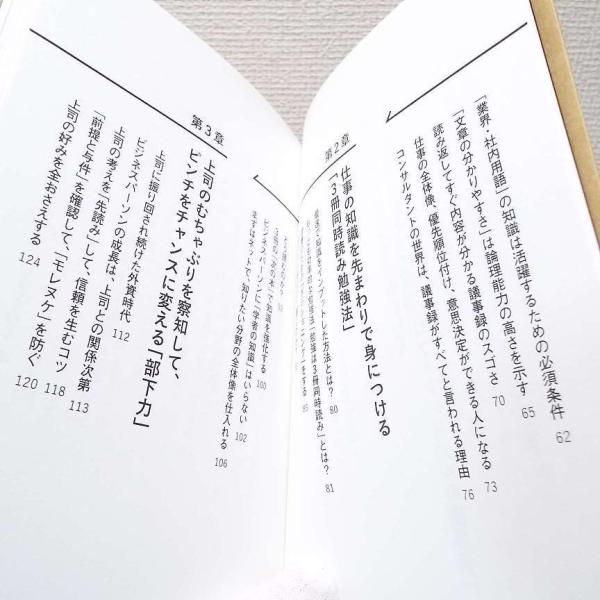 「業界・社内用語」の知識は活躍するための必須条件 62
「文章の分かりやすさ」は論理能力の高さを示す 65
読み返してすぐ内容が分かる議事録のスゴさ 70
仕事の全体像、優先順位付け、意思決定ができる人になる 73
コンサルタントの世界は、議事録がすべてと言われる理由 76
第2章
仕事の知識を先まわりで身につける
「3冊同時読み勉強法」
最速で知識をインプットした方法とは? 80
勉強法「勉強は3冊同時読み」とは? 81
をする 85
知識を強化する
ビジネスパーソンに「学者の知識」はいらない 102
まずはネットで、知りたい分野の全体像を仕入れる 106
100
第3章
上司のむちゃぶりを察知して、
ピンチをチャンスに変える「部下力」
上司に振り回され続けた外資時代 112
ビジネスパーソンの成長は、上司との関係次第 113
上司の考えを"先読み"して、信頼を生むコツ 118
「前提と与件」を確認して、「モレヌケ」を防ぐ 120
上司の好みを全おさえする 124